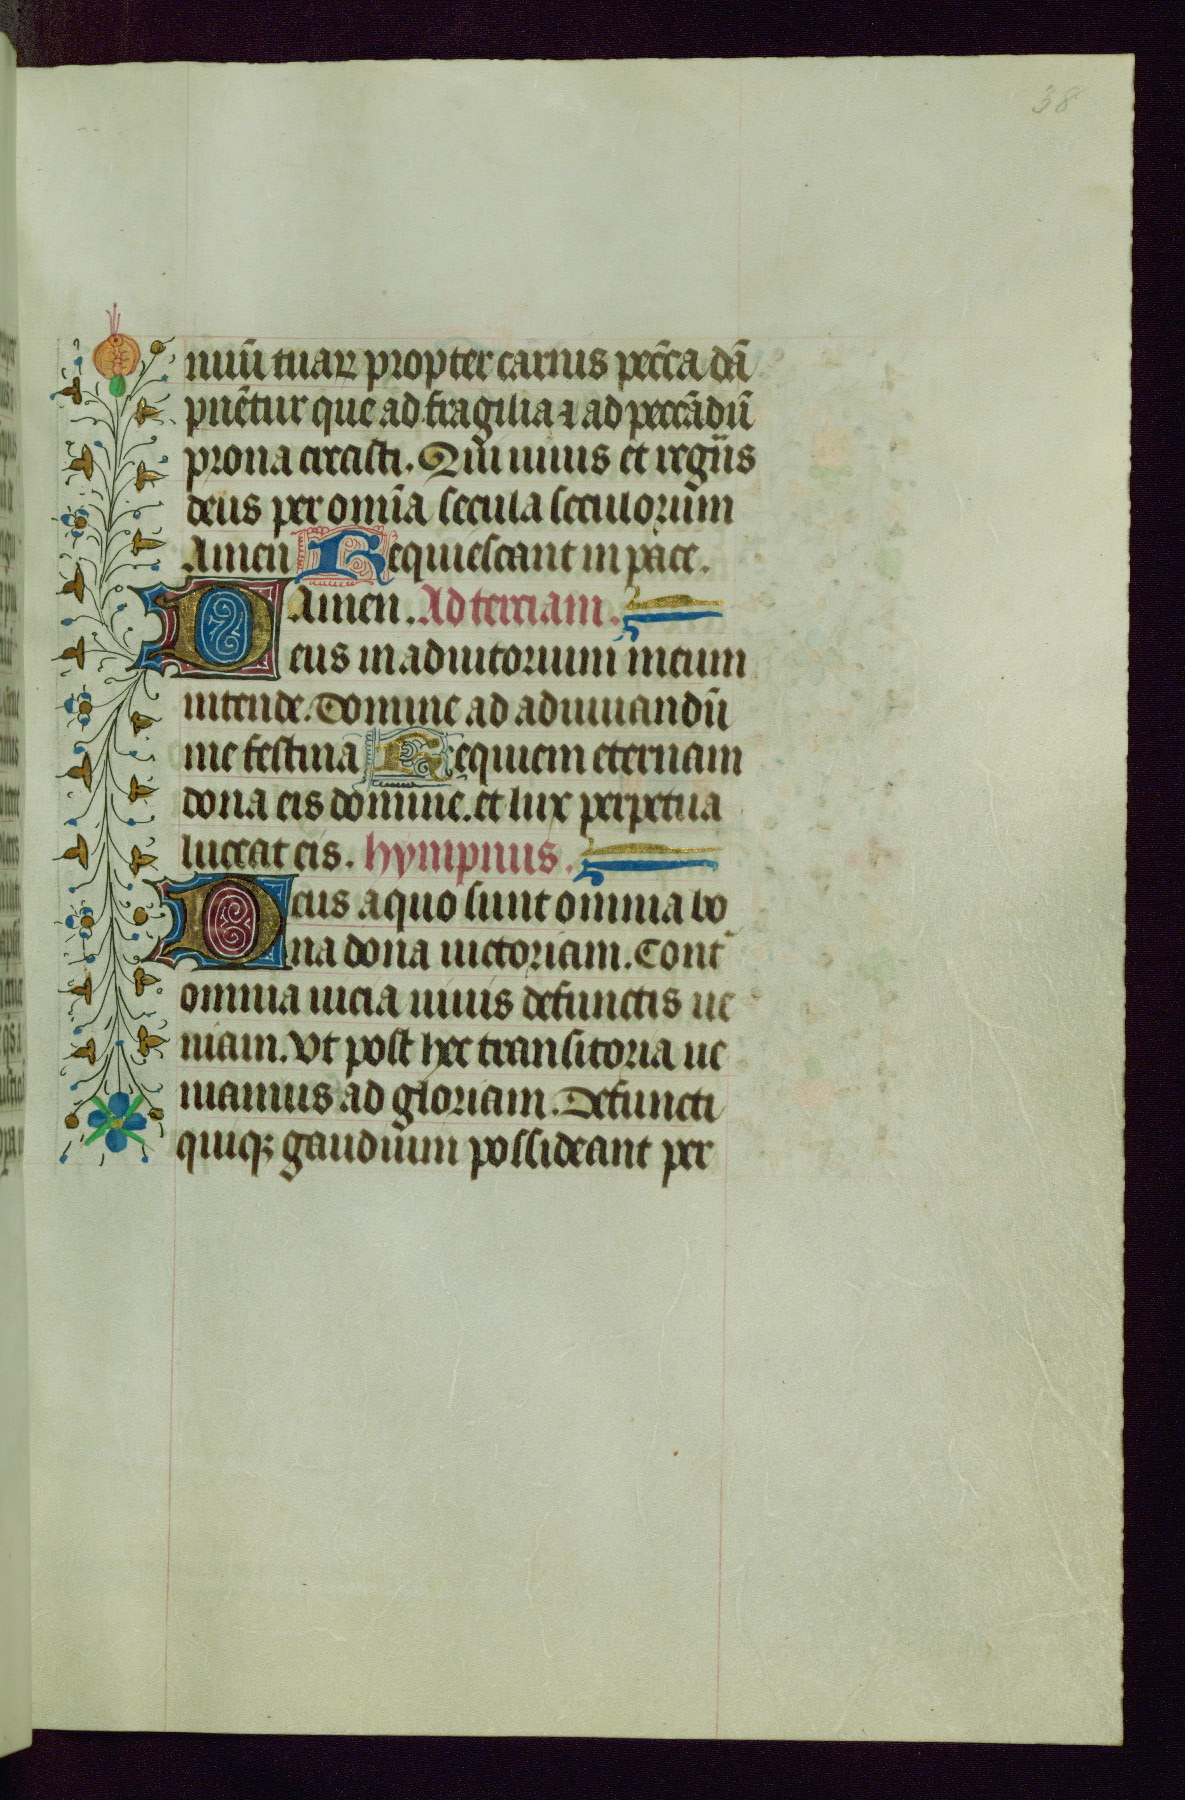 38
nuū tuaꝝ propter carnis pecc̄a dā
pnētur que ad fragilia ⁊ ad peccādū
prona creasti. Qui uiuis et regn̄s
deus per omīa secula seculorum
Amen Requiescant in pace.
Amen. Ad terciam.
Deus in adiutorium meum
intende. Domine ad adiuuandū
me festina Requiem eternam
dona eis domine. et lux perpetua
luceat eis. hympnus.
Deus a quo sunt omnia bo
na dona uictoriam. Cont̄
omnia uicia uiuis defunctis ue
niam. Vt post hec transitoria ue
niamus ad gloriam. Defuncti
quiqꝫ gaudium possideant per